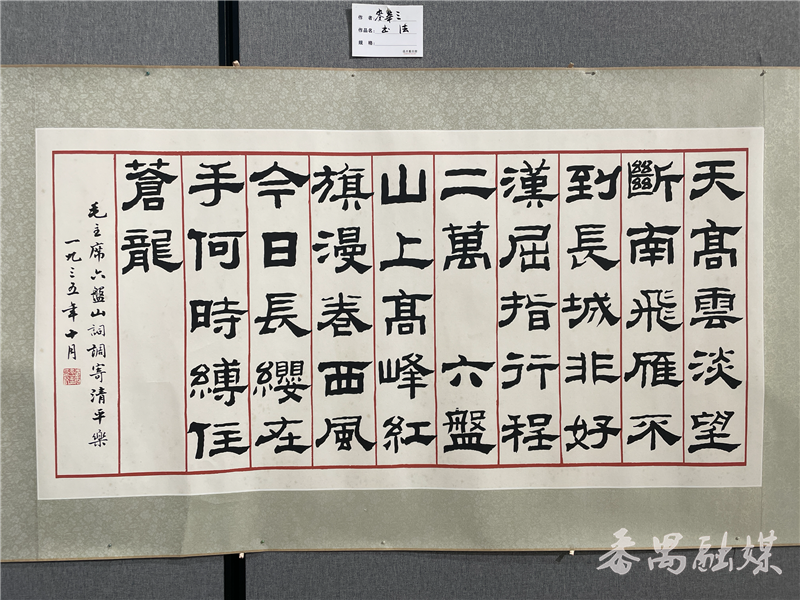 作 者：麥華三
作品名：书 法
规 格：
天髙雲淡望
斷南飛雁不
到長城非好
漢屈指行程
二萬 六盤
山上髙峰紅
旗漫卷西風
今日長纓在
手何時縛住
蒼龍
毛主席六盤山詞調寄清平樂
一九三五年十月
番禺融媒